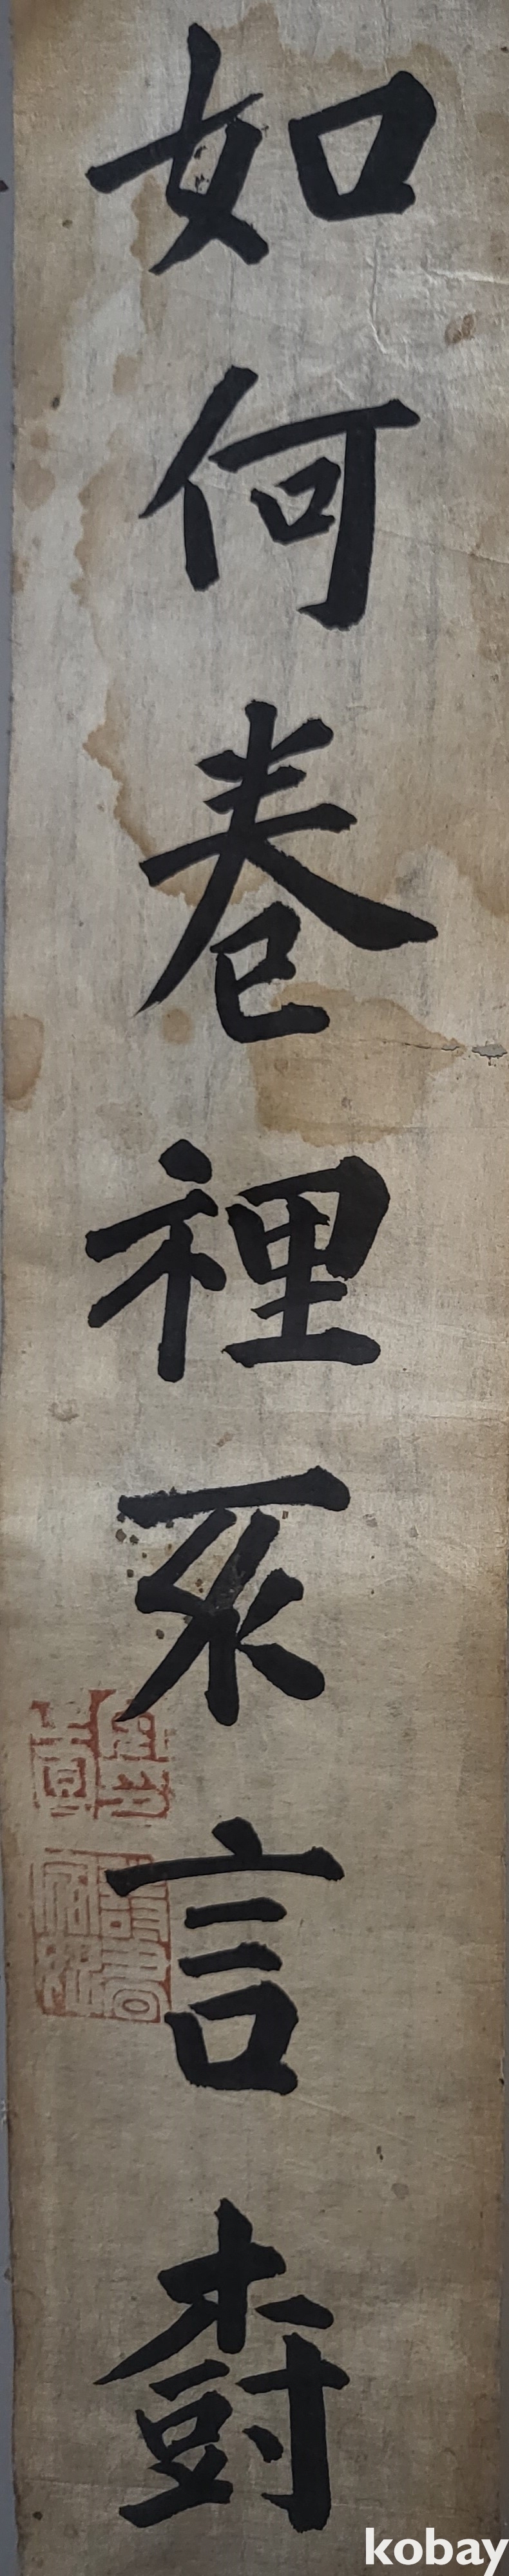 如何卷裡言樹
kobay